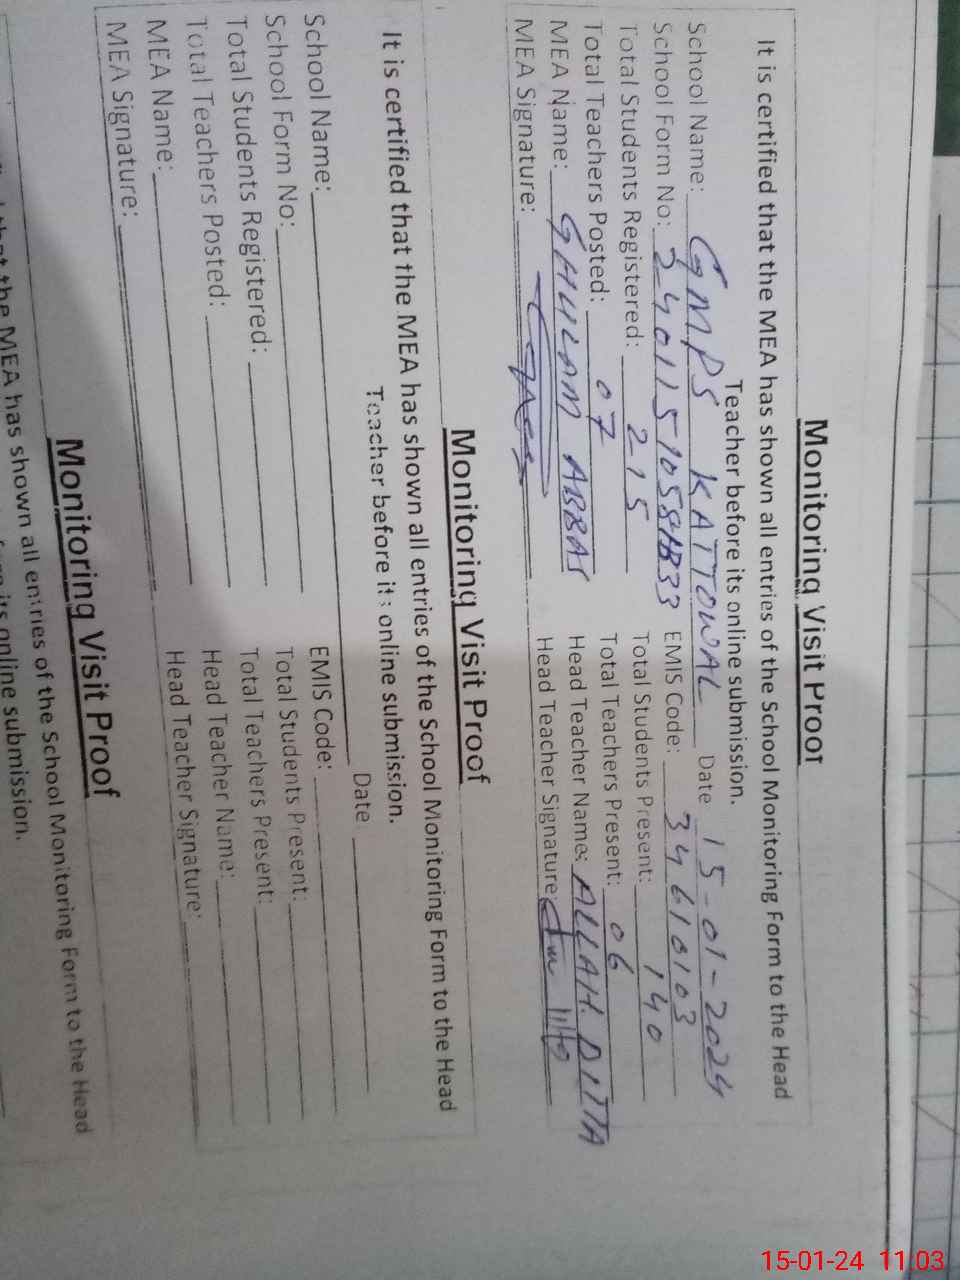 Monitoring Visit Proof
It is certified that the MEA has shown all entries of the School Monitoring Form to the Head
Teacher before its online submission.
School Name: GMPS KATTOWAL Date 15-01-2024
School Form No: EMIS Code: 34610103
Total Students Registered: 215 Total Students Present: 140
Total Teachers Posted: 07 Total Teachers Present: 06
MEA Name: GHULAM ABBAS Head Teacher Name: ALLAH DITTA
MEA Signature: Head Teacher Signature:
Monitoring Visit Proof
It is certified that the MEA has shown all entries of the School Monitoring Form to the Head
Teacher before its online submission.
School Name: Date
School Form No: EMIS Code:
Total Students Registered: Total Students Present:
Total Teachers Posted: Total Teachers Present:
MEA Name: Head Teacher Name:
MEA Signature: Head Teacher Signature:
Monitoring Visit Proof
that the MEA has shown all entries of the School Monitoring Form to the Head
its online submission.
15-01-24 11:03